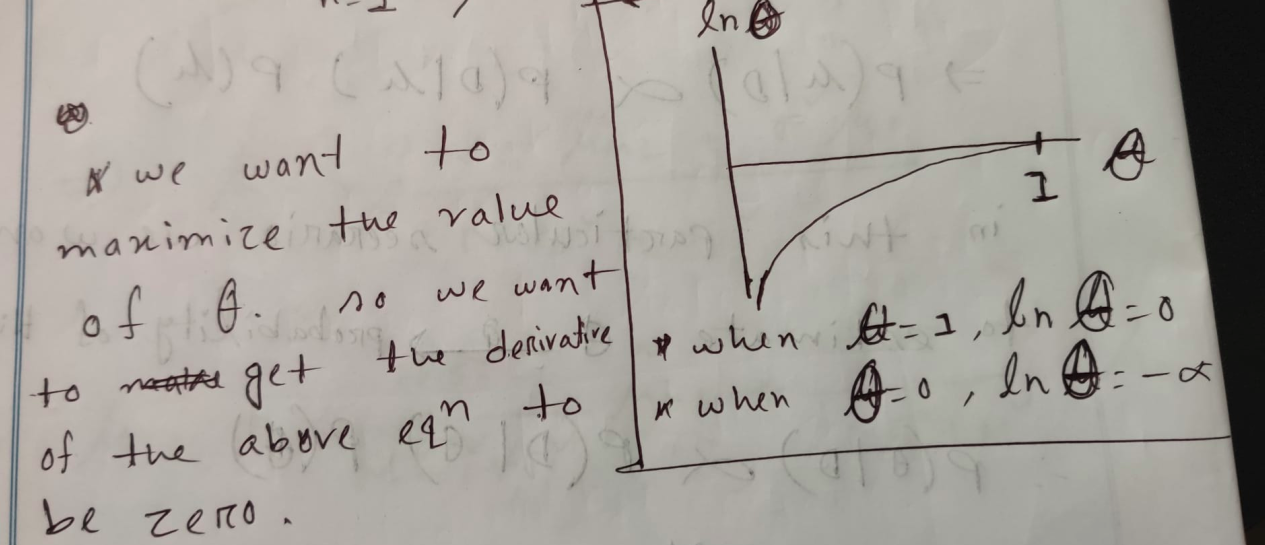 * we want to
maximize the value
of θ. so we want
to get the derivative
of the above eqⁿ to
be zero.
ln θ
θ
1
* when θ = 1, ln θ = 0
* when θ = 0, ln θ = -∝